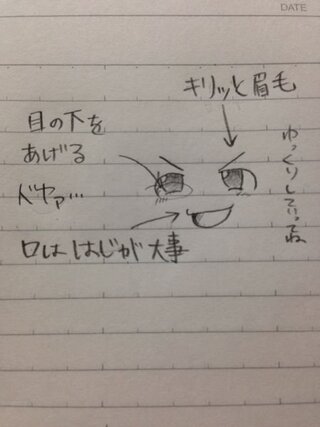 DATE
キリッと眉毛
目の下を
あげる
ドヤァ…
ゆっくりしていってね
口ははじが大事